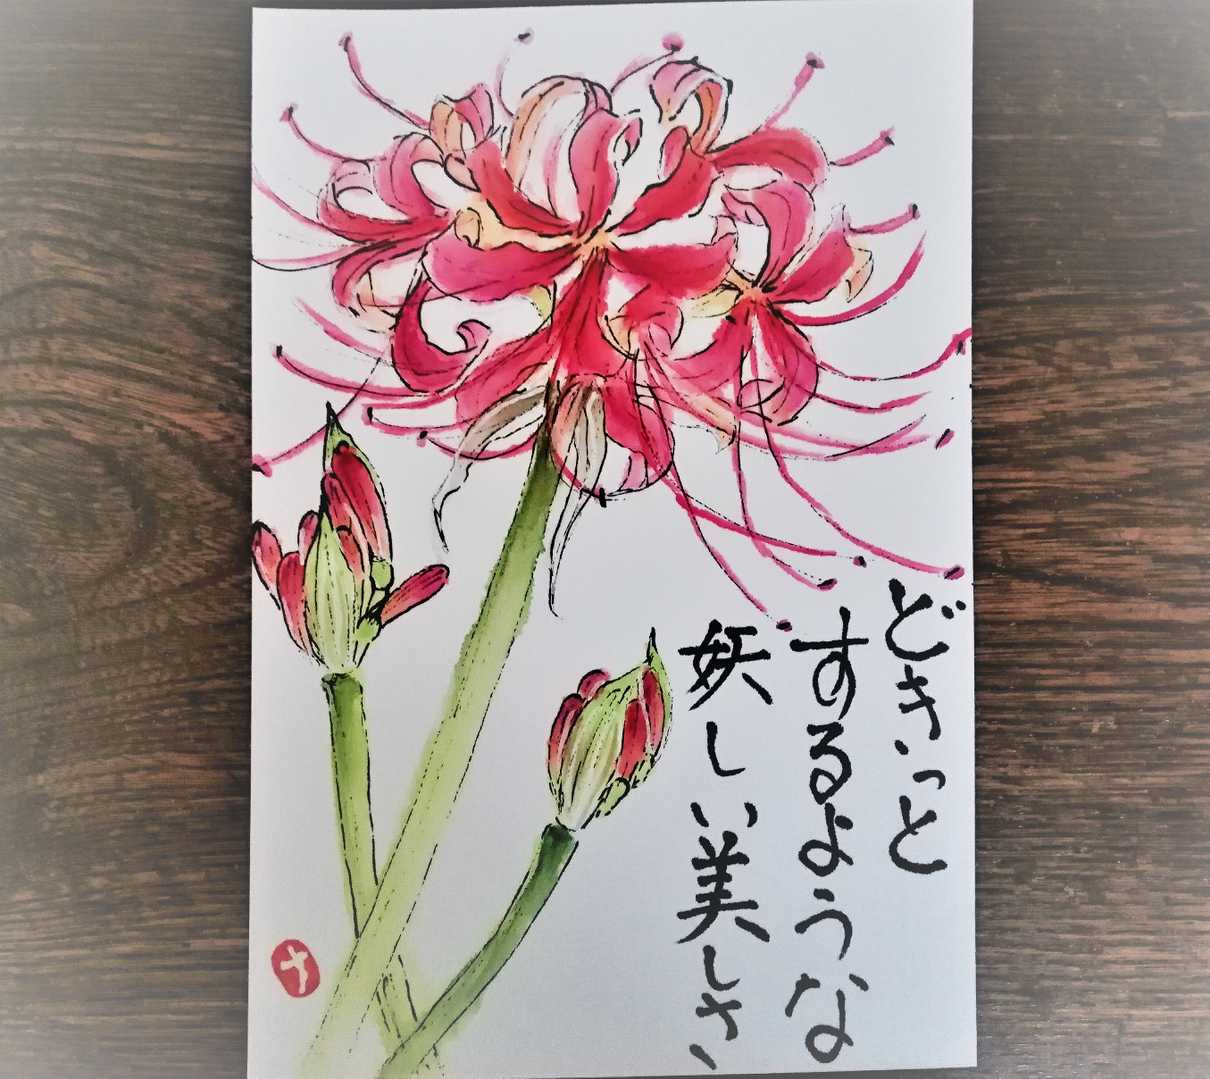 どきっと
するような
妖しい美しさ